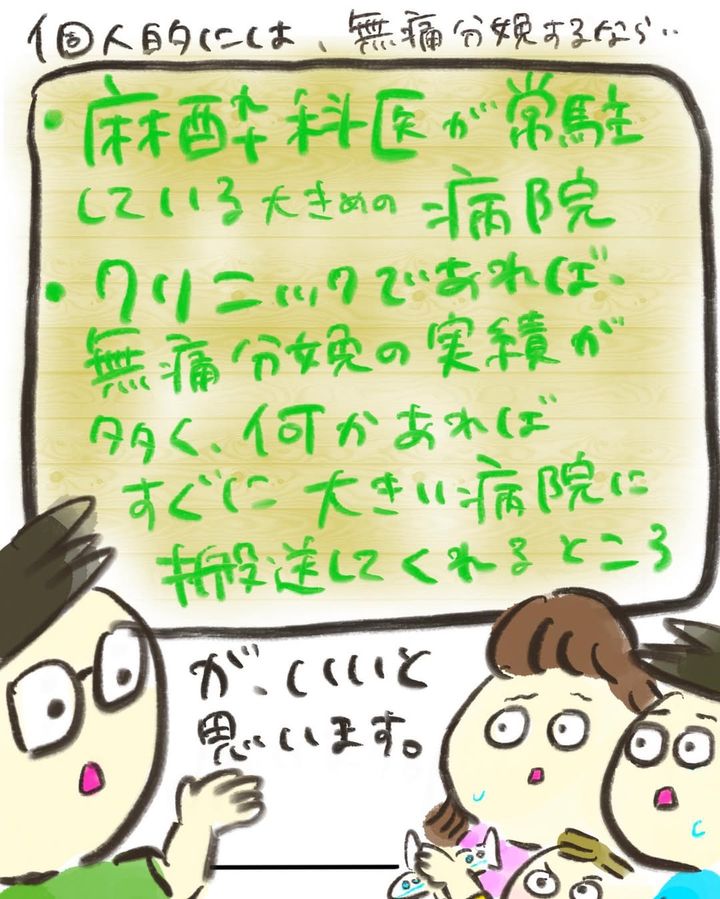 個人的には、無痛分娩するなら‥
・麻酔科医が常駐
している大きめの病院
・クリニックであれば、
無痛分娩の実績が
多く、何かあれば
すぐに大きい病院に
搬送してくれるところ
が、いいと
思います。